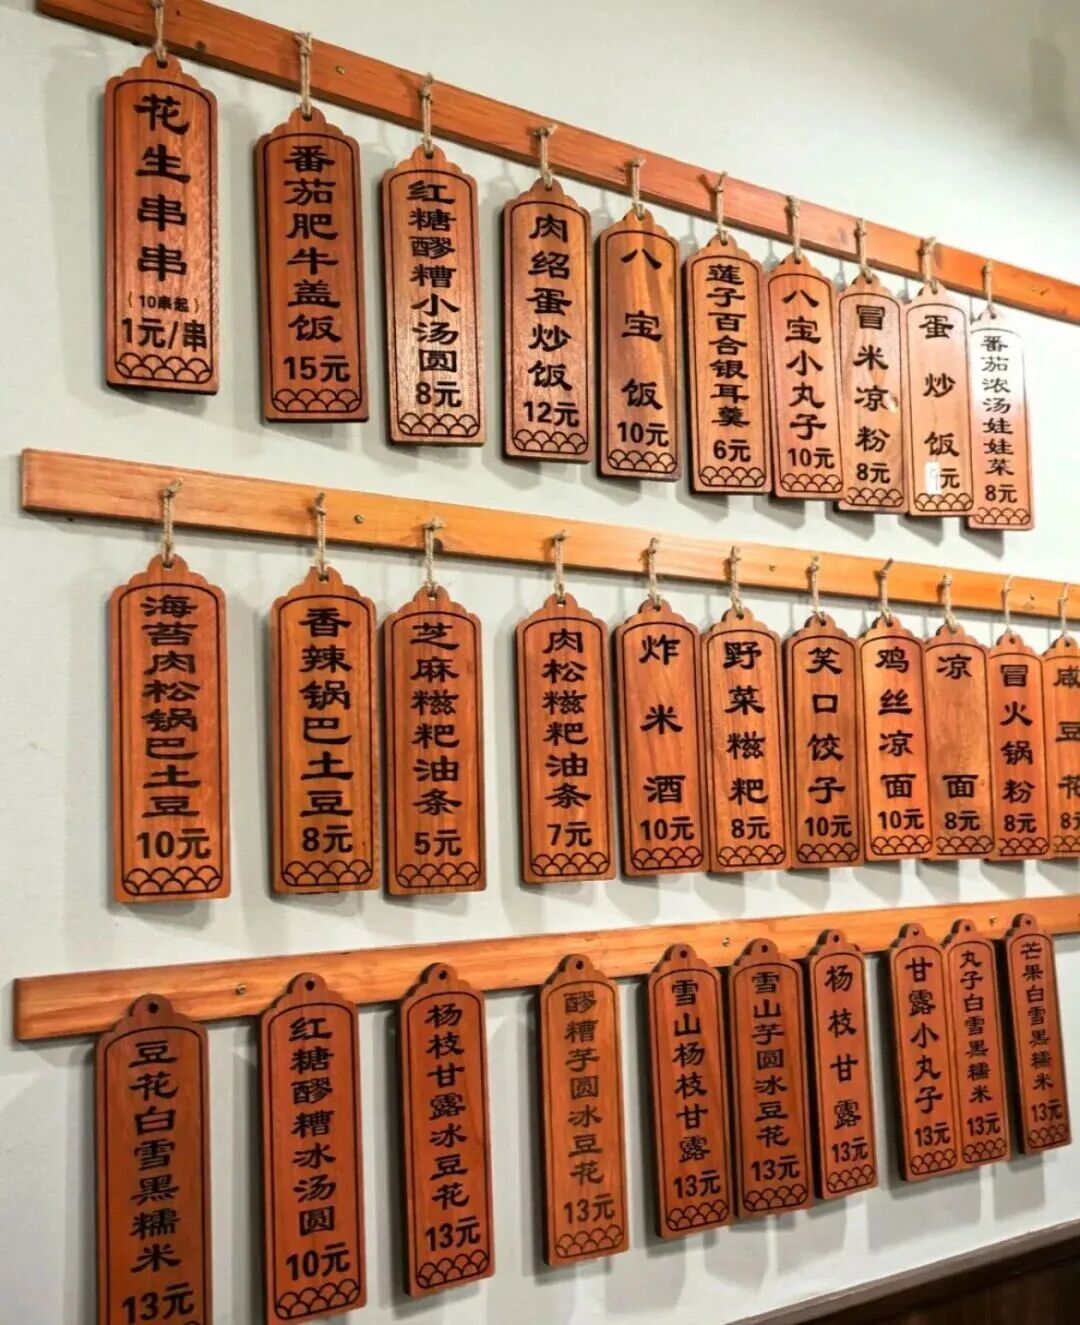 花生串串
(10串起)
1元/串
番茄肥牛盖饭
15元
红糖醪糟小汤圆
8元
肉绍蛋炒饭
12元
八宝饭
10元
莲子百合银耳羹
6元
八宝小丸子
10元
冒米凉粉
8元
蛋炒饭
9元
番茄浓汤娃娃菜
8元
海苔肉松锅巴土豆
10元
香辣锅巴土豆
8元
芝麻糍粑油条
5元
肉松糍粑油条
7元
炸米酒
10元
野菜糍粑
8元
笑口饺子
10元
鸡丝凉面
10元
凉面
8元
冒火锅粉
8元
咸豆花
8元
豆花白雪黑糯米
13元
红糖醪糟冰汤圆
10元
杨枝甘露冰豆花
13元
醪糟芋圆冰豆花
13元
雪山杨枝甘露
13元
雪山芋圆冰豆花
13元
杨枝甘露
13元
甘露小丸子
13元
丸子白雪黑糯米
13元
芒果白雪黑糯米
13元